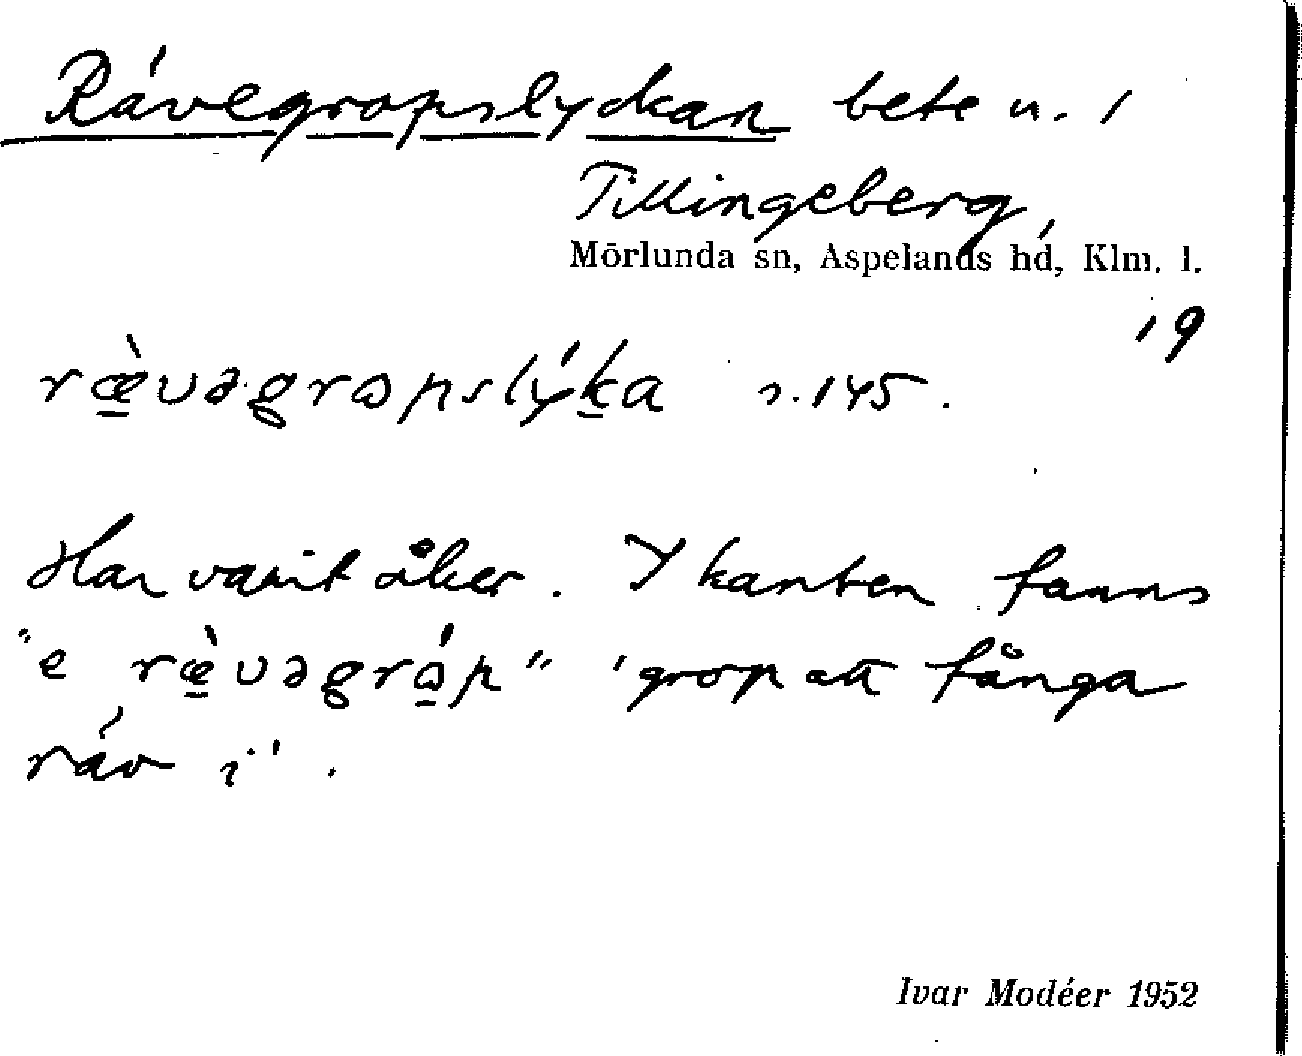 Rävegropslyckan bete u. 1
Tillingeberg,
Mörlunda sn, Aspelands hd, Klm. l.
19
ræ̀vəgropslýka s. 145.
Har varit åker. I kanten fanns
"e ræ̀vəgróp" 'grop att fånga
räv i'.
Ivar Modéer 1952